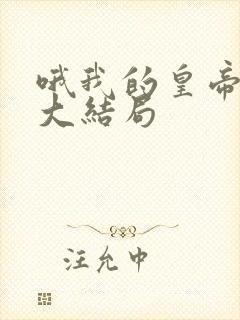 哦我的皇帝
大结局
汪允中